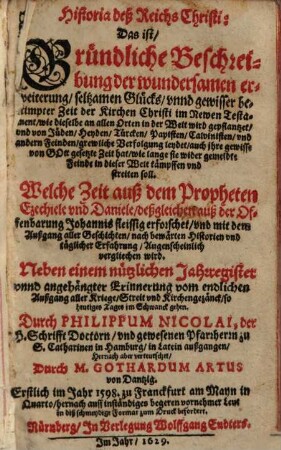 Historia deß Reichs Christi:
Das ist/
Gründliche Beschrei-
bung der wundersamen er-
weiterung/ seltzamen Glücks/ vnnd gewisser be-
stimpter Zeit der Kirchen Christi im Newen Testa-
ment/ wie dieselbe an allen Orten in der Welt wird gepflantzet/
vnd von Jüden/ Heyden/ Türcken/ Papisten/ Calvinisten/ vnd
andern Feinden/ grewliche Verfolgung leydet/ auch ihre gewisse
von GOtt gesetzte Zeit hat/ wie lange sie wider gemeldte
Feinde in dieser Welt kämpffen vnd
streiten soll.
Welche Zeit auß dem Propheten
Ezechiele vnd Daniele/ deßgleichen auß der Of-
fenbarung Johannis fleissig erforschet/ vnd mit dem
Außgang aller Geschichten/ nach bewärten Historien vnd
täglicher Erfahrung/ Augenscheinlich
verglichen wird.
Neben einem nützlichen Jahrregister
vnnd angehängter Erinnerung vom endlichen
Außgang aller Kriege/ Streit vnd Kirchengezänck/ so
heutiges Tages im Schwanck gehen.
Durch PHILIPPUM NICOLAI, der
H. Schrifft Doctorn/ vnd gewesenen Pfarherrn zu
S. Catharinen in Hamburg/ in Latein außgangen/
Hernach aber verteutschet/
Durch M. GOTHARDUM ARTUS
von Dantzig.
Erstlich im Jahr 1598. zu Franckfurt am Mayn in
Quarto/ hernach auff inständiges begeren vornehmer Leut
in diß Format zum Druck befördert.
Nürnberg/ In Verlegung Wolffgang Endters.
Im Jahr/ 1629.